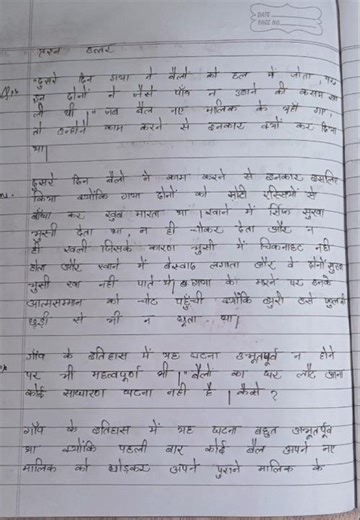 DATE
PAGE NO.
प्रश्न उत्तर
"दुसरे दिन गया ने बैलों को हल में जोता, पर
इन दोनों ने जैसे पाँव न उठाने की कसम खा
ली थी।" जब बैल नए मालिक के यहाँ गए,
तो उन्होंने काम करने से इनकार क्यों कर दिया
था।
दुसरे दिन बैलो ने काम करने से इनकार इसलिए
किया क्योंकि गया दोनों को मोटी रस्सियों से
बाँधा कर खुब मारता था। खाने में सिर्फ सुखा
भुसी देता था, न ही चोकर देता और न
ही खली जिसके कारण भुसी में चिकनाहट नही
होता और खाने में बेस्वाद लगता और वे दोनों सुखा
भुसी खा नहीं पाते थे। गया के मारने पर उनके
आत्मसम्मान को चोट पहुँची क्योंकि झुरी उसे फुल की
छड़ी से भी न छुता था।
गाँव के इतिहास में यह घटना अभूतपूर्व न होने
पर भी महत्वपूर्ण थी। "बैलो का घर लौट आना
कोई साधारण घटना नही है। कैसे ?
गाँव के इतिहास में यह घटना बहुत अभूतपूर्व
था क्योंकि पहली बार कोई बैल अपने नए
मालिक को छोड़कर अपने पुराने मालिक के